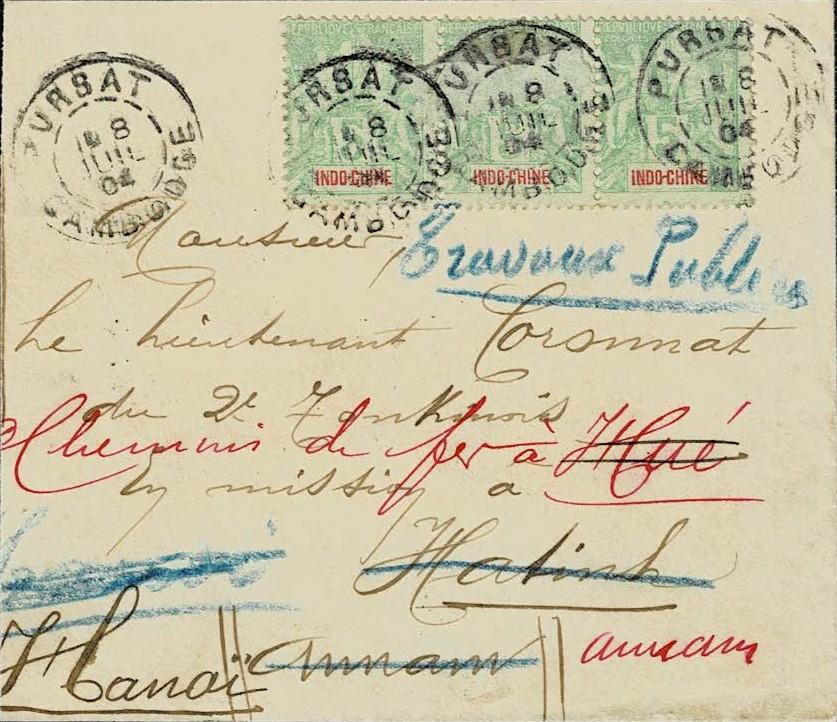 RÉPUBLIQUE FRANÇAISE
INDO-CHINE INDO-CHINE INDO-CHINE
PURSAT 8 JUIL 04 CAMBODGE
URSAT 8 JUIL CAMBODGE
URSAT 8 JUIL 04 CAMBODGE
PURSAT 8 JUIL 04
Monsieur,
Travaux Publics
Le Lieutenant
du 2e Tonkinois
Chemins de fer à Hué
En mission a
Hatinh
Hanoï Annam annam